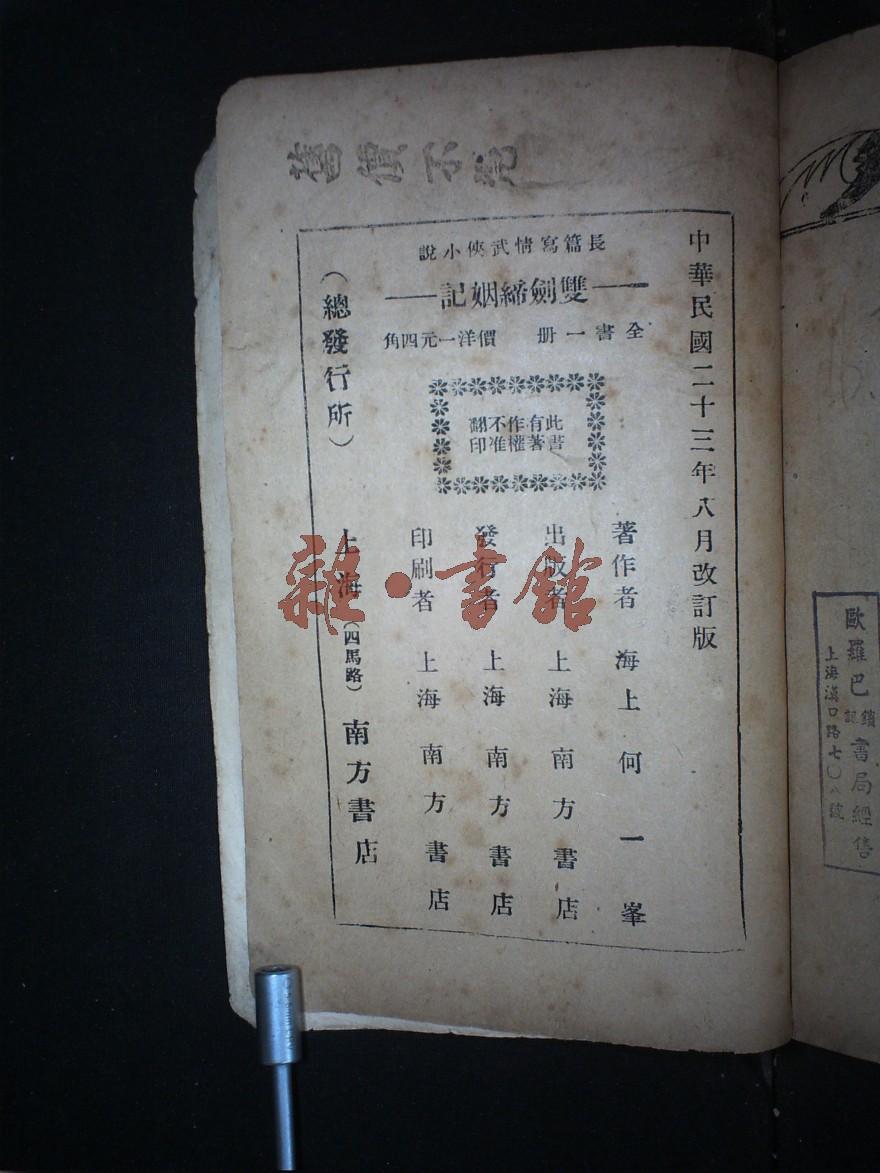 舊價不兌
中華民國二十三年八月改訂版
長篇寫情武俠小說
雙劍締姻記
全書一册 價洋一元四角
此書
有著
作權
不准
翻印
著作者 海上 何一峯
出版者 上海 南方書店
發行者 上海 南方書店
印刷者 上海 南方書店
(總發行所) 上海 (四馬路) 南方書店
雜·書館
歐羅巴 書局經售
上海漢口路七〇八號